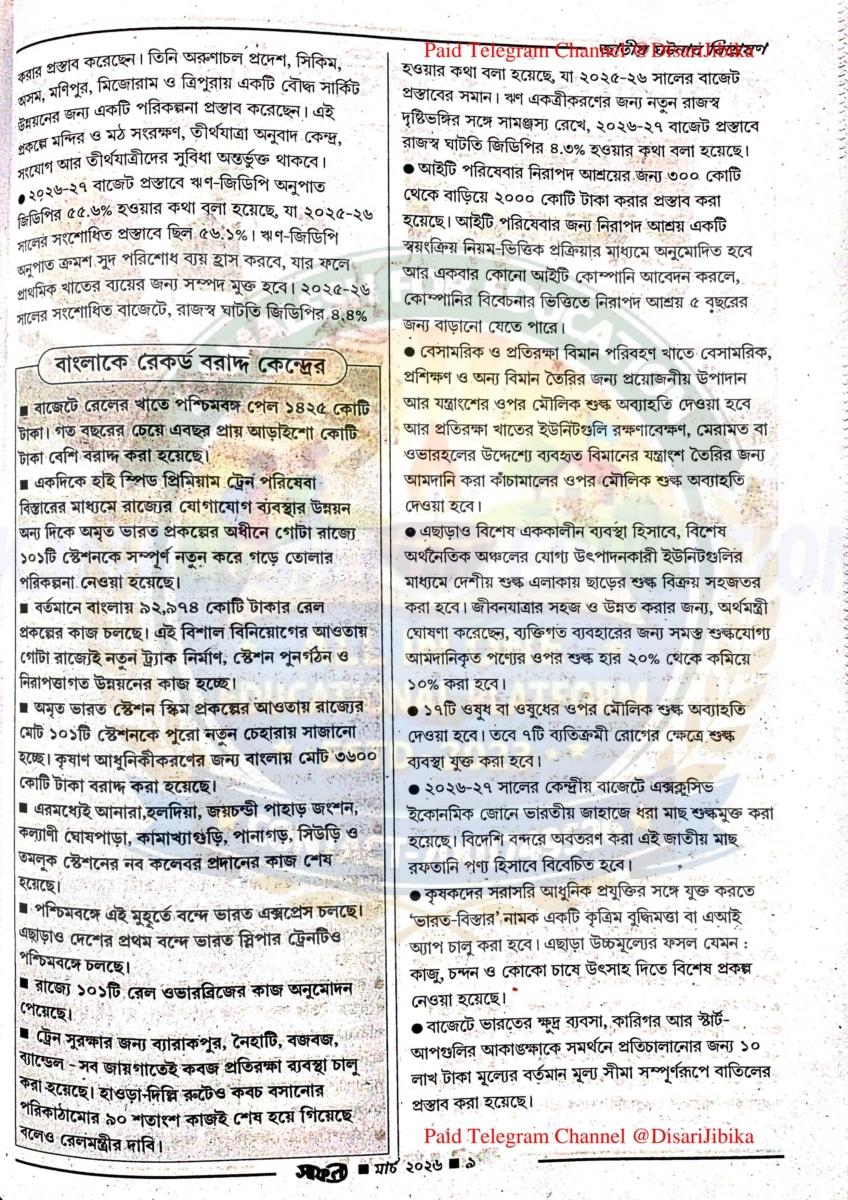 Paid Telegram Channel @DisariJibika
জাতীয় ঘটনার বিশ্লেষণ
করার প্রস্তাব করেছেন। তিনি অরুণাচল প্রদেশ, সিকিম,
অসম, মণিপুর, মিজোরাম ও ত্রিপুরায় একটি বৌদ্ধ সার্কিট
উন্নয়নের জন্য একটি পরিকল্পনা প্রস্তাব করেছেন। এই
প্রকল্পে মন্দির ও মঠ সংরক্ষণ, তীর্থযাত্রা অনুবাদ কেন্দ্র,
সংযোগ আর তীর্থযাত্রীদের সুবিধা অন্তর্ভুক্ত থাকবে।
● ২০২৬-২৭ বাজেট প্রস্তাবে ঋণ-জিডিপি অনুপাত
জিডিপির ৫৫.৬% হওয়ার কথা বলা হয়েছে, যা ২০২৫-২৬
সালের সংশোধিত প্রস্তাবে ছিল ৫৬.১%। ঋণ-জিডিপি
অনুপাত ক্রমশ সুদ পরিশোধ ব্যয় হ্রাস করবে, যার ফলে
প্রাথমিক খাতের ব্যয়ের জন্য সম্পদ মুক্ত হবে। ২০২৫-২৬
সালের সংশোধিত বাজেটে, রাজস্ব ঘাটতি জিডিপির ৪.৪%
বাংলাকে রেকর্ড বরাদ্দ কেন্দ্রের
■ বাজেটে রেলের খাতে পশ্চিমবঙ্গ পেল ১৪২৫ কোটি
টাকা। গত বছরের চেয়ে এবছর প্রায় আড়াইশো কোটি
টাকা বেশি বরাদ্দ করা হয়েছে।
■ একদিকে হাই স্পিড প্রিমিয়াম ট্রেন পরিষেবা
বিস্তারের মাধ্যমে রাজ্যের যোগাযোগ ব্যবস্থার উন্নয়ন
অন্য দিকে অমৃত ভারত প্রকল্পের অধীনে গোটা রাজ্যে
১০১টি স্টেশনকে সম্পূর্ণ নতুন করে গড়ে তোলার
পরিকল্পনা নেওয়া হয়েছে।
■ বর্তমানে বাংলায় ৯২,৯৭৪ কোটি টাকার রেল
প্রকল্পের কাজ চলছে। এই বিশাল বিনিয়োগের আওতায়
গোটা রাজ্যেই নতুন ট্র্যাক নির্মাণ, স্টেশন পুনর্গঠন ও
নিরাপত্তাগত উন্নয়নের কাজ হচ্ছে।
■ অমৃত ভারত স্টেশন স্কিম প্রকল্পের আওতায় রাজ্যের
মোট ১০১টি স্টেশনকে পুরো নতুন চেহারায় সাজানো
হচ্ছে। কৃষাণ আধুনিকীকরণের জন্য বাংলায় মোট ৩৬০০
কোটি টাকা বরাদ্দ করা হয়েছে।
■ এরমধ্যেই আনারা,হলদিয়া, জয়চন্ডী পাহাড় জংশন,
কল্যাণী ঘোষপাড়া, কামাখ্যাগুড়ি, পানাগড়, সিউড়ি ও
তমলুক স্টেশনের নব কলেবর প্রদানের কাজ শেষ
হয়েছে।
■ পশ্চিমবঙ্গে এই মুহূর্তে বন্দে ভারত এক্সপ্রেস চলছে।
এছাড়াও দেশের প্রথম বন্দে ভারত স্লিপার ট্রেনটিও
পশ্চিমবঙ্গে চলছে।
■ রাজ্যে ১০১টি রেল ওভারব্রিজের কাজ অনুমোদন
পেয়েছে।
■ ট্রেন সুরক্ষার জন্য ব্যারাকপুর, নৈহাটি, বজবজ,
ব্যান্ডেল - সব জায়গাতেই কবজ প্রতিরক্ষা ব্যবস্থা চালু
করা হয়েছে। হাওড়া-দিল্লি রুটেও কবচ বসানোর
পরিকাঠামোর ৯০ শতাংশ কাজই শেষ হয়ে গিয়েছে
বলেও রেলমন্ত্রীর দাবি।
হওয়ার কথা বলা হয়েছে, যা ২০২৫-২৬ সালের বাজেট
প্রস্তাবের সমান। ঋণ একত্রীকরণের জন্য নতুন রাজস্ব
দৃষ্টিভঙ্গির সঙ্গে সামঞ্জস্য রেখে, ২০২৬-২৭ বাজেট প্রস্তাবে
রাজস্ব ঘাটতি জিডিপির ৪.৩% হওয়ার কথা বলা হয়েছে।
● আইটি পরিষেবার নিরাপদ আশ্রয়ের জন্য ৩০০ কোটি
থেকে বাড়িয়ে ২০০০ কোটি টাকা করার প্রস্তাব করা
হয়েছে। আইটি পরিষেবার জন্য নিরাপদ আশ্রয় একটি
স্বয়ংক্রিয় নিয়ম-ভিত্তিক প্রক্রিয়ার মাধ্যমে অনুমোদিত হবে
আর একবার কোনো আইটি কোম্পানি আবেদন করলে,
কোম্পানির বিবেচনার ভিত্তিতে নিরাপদ আশ্রয় ৫ বছরের
জন্য বাড়ানো যেতে পারে।
● বেসামরিক ও প্রতিরক্ষা বিমান পরিবহণ খাতে বেসামরিক,
প্রশিক্ষণ ও অন্য বিমান তৈরির জন্য প্রয়োজনীয় উপাদান
আর যন্ত্রাংশের ওপর মৌলিক শুল্ক অব্যাহতি দেওয়া হবে
আর প্রতিরক্ষা খাতের ইউনিটগুলি রক্ষণাবেক্ষণ, মেরামত বা
ওভারহলের উদ্দেশ্যে ব্যবহৃত বিমানের যন্ত্রাংশ তৈরির জন্য
আমদানি করা কাঁচামালের ওপর মৌলিক শুল্ক অব্যাহতি
দেওয়া হবে।
● এছাড়াও বিশেষ এককালীন ব্যবস্থা হিসাবে, বিশেষ
অর্থনৈতিক অঞ্চলের যোগ্য উৎপাদনকারী ইউনিটগুলির
মাধ্যমে দেশীয় শুল্ক এলাকায় ছাড়ের শুল্ক বিক্রয় সহজতর
করা হবে। জীবনযাত্রার সহজ ও উন্নত করার জন্য, অর্থমন্ত্রী
ঘোষণা করেছেন, ব্যক্তিগত ব্যবহারের জন্য সমস্ত শুল্কযোগ্য
আমদানিকৃত পণ্যের ওপর শুল্ক হার ২০% থেকে কমিয়ে
১০% করা হবে।
● ১৭টি ওষুধ বা ওষুধের ওপর মৌলিক শুল্ক অব্যাহতি
দেওয়া হবে। তবে ৭টি ব্যতিক্রমী রোগের ক্ষেত্রে শুল্ক
ব্যবস্থা যুক্ত করা হবে।
● ২০২৬-২৭ সালের কেন্দ্রীয় বাজেটে এক্সক্লুসিভ
ইকোনমিক জোনে ভারতীয় জাহাজে ধরা মাছ শুল্কমুক্ত করা
হয়েছে। বিদেশি বন্দরে অবতরণ করা এই জাতীয় মাছ
রফতানি পণ্য হিসাবে বিবেচিত হবে।
● কৃষকদের সরাসরি আধুনিক প্রযুক্তির সঙ্গে যুক্ত করতে
'ভারত-বিস্তার' নামক একটি কৃত্রিম বুদ্ধিমত্তা বা এআই
অ্যাপ চালু করা হবে। এছাড়া উচ্চমূল্যের ফসল যেমন :
কাজু, চন্দন ও কোকো চাষে উৎসাহ দিতে বিশেষ প্রকল্প
নেওয়া হয়েছে।
● বাজেটে ভারতের ক্ষুদ্র ব্যবসা, কারিগর আর স্টার্ট-
আপগুলির আকাঙ্ক্ষাকে সমর্থনে প্রতিচালানোর জন্য ১০
লাখ টাকা মূল্যের বর্তমান মূল্য সীমা সম্পূর্ণরূপে বাতিলের
প্রস্তাব করা হয়েছে।
Paid Telegram Channel @DisariJibika
সাফল্য ■ মার্চ ২০২৬ ■ ৯